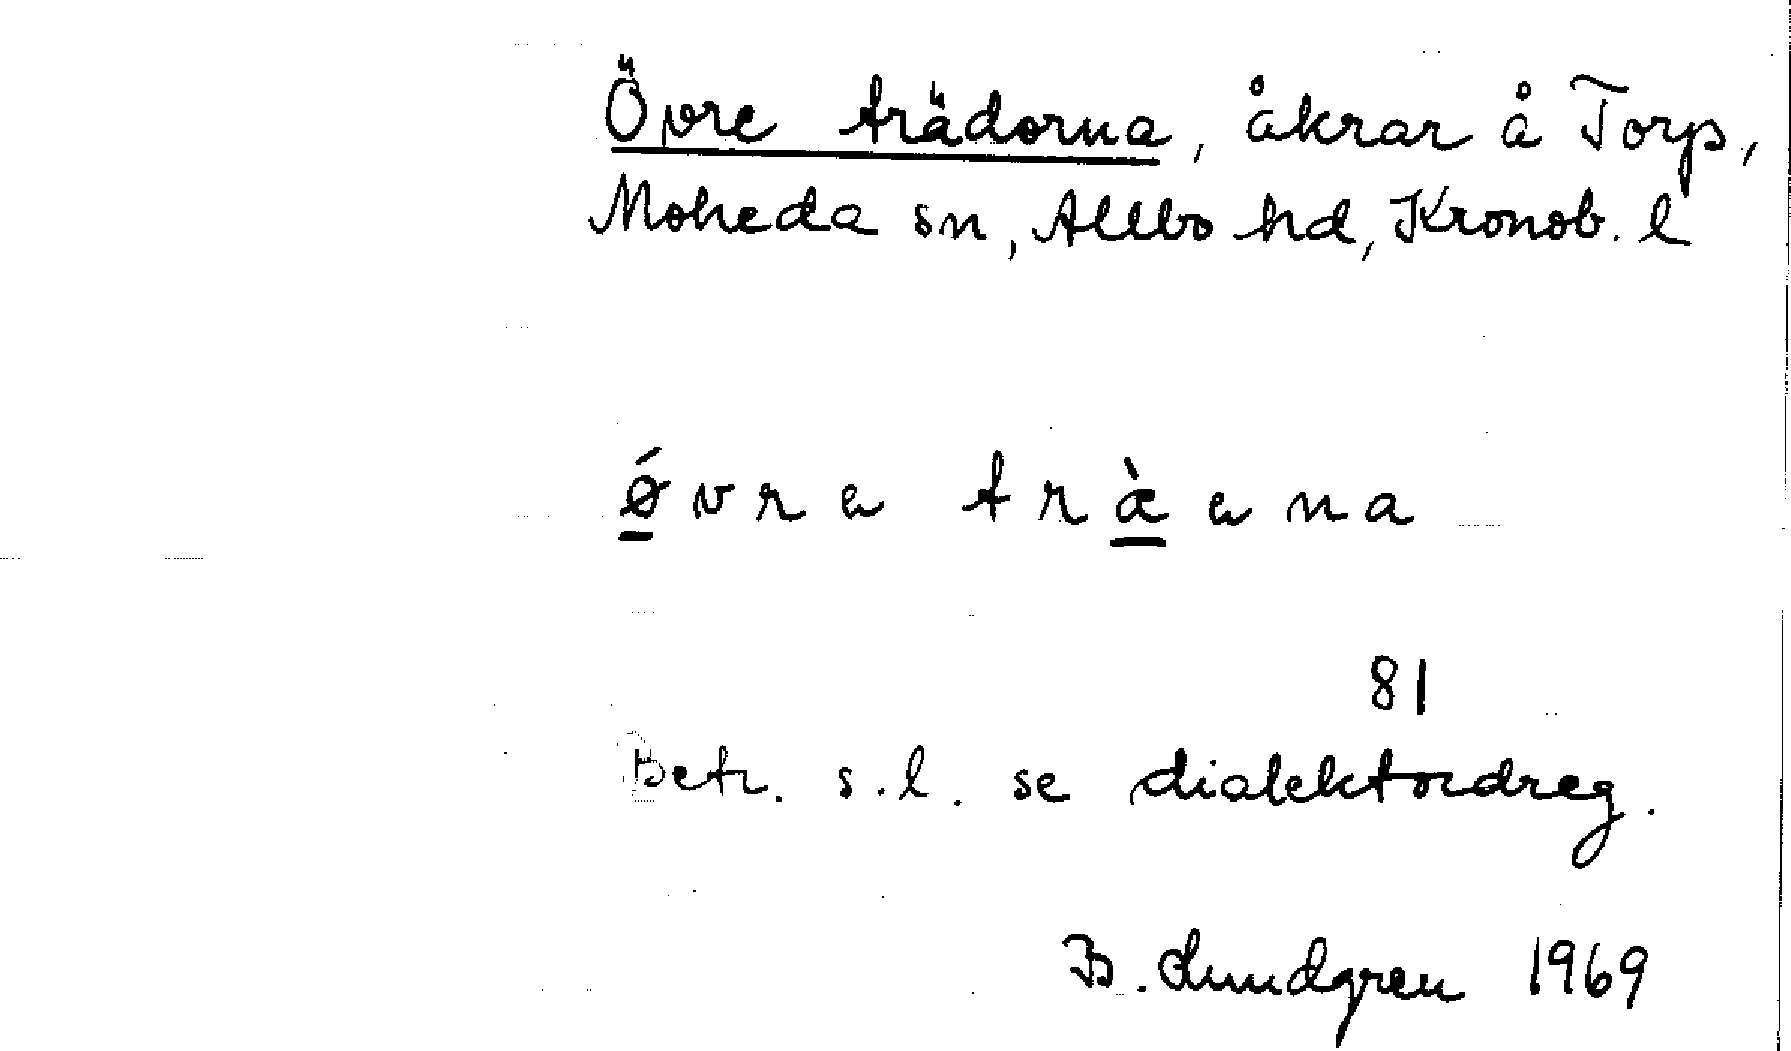 Övre trädorna, åkrar å Torp,
Moheda sn, Allbo hd, Kronob. l
ǿvrə træ̀əna
81
Betr. s.l. se dialektordreg.
B. Lundgren 1969